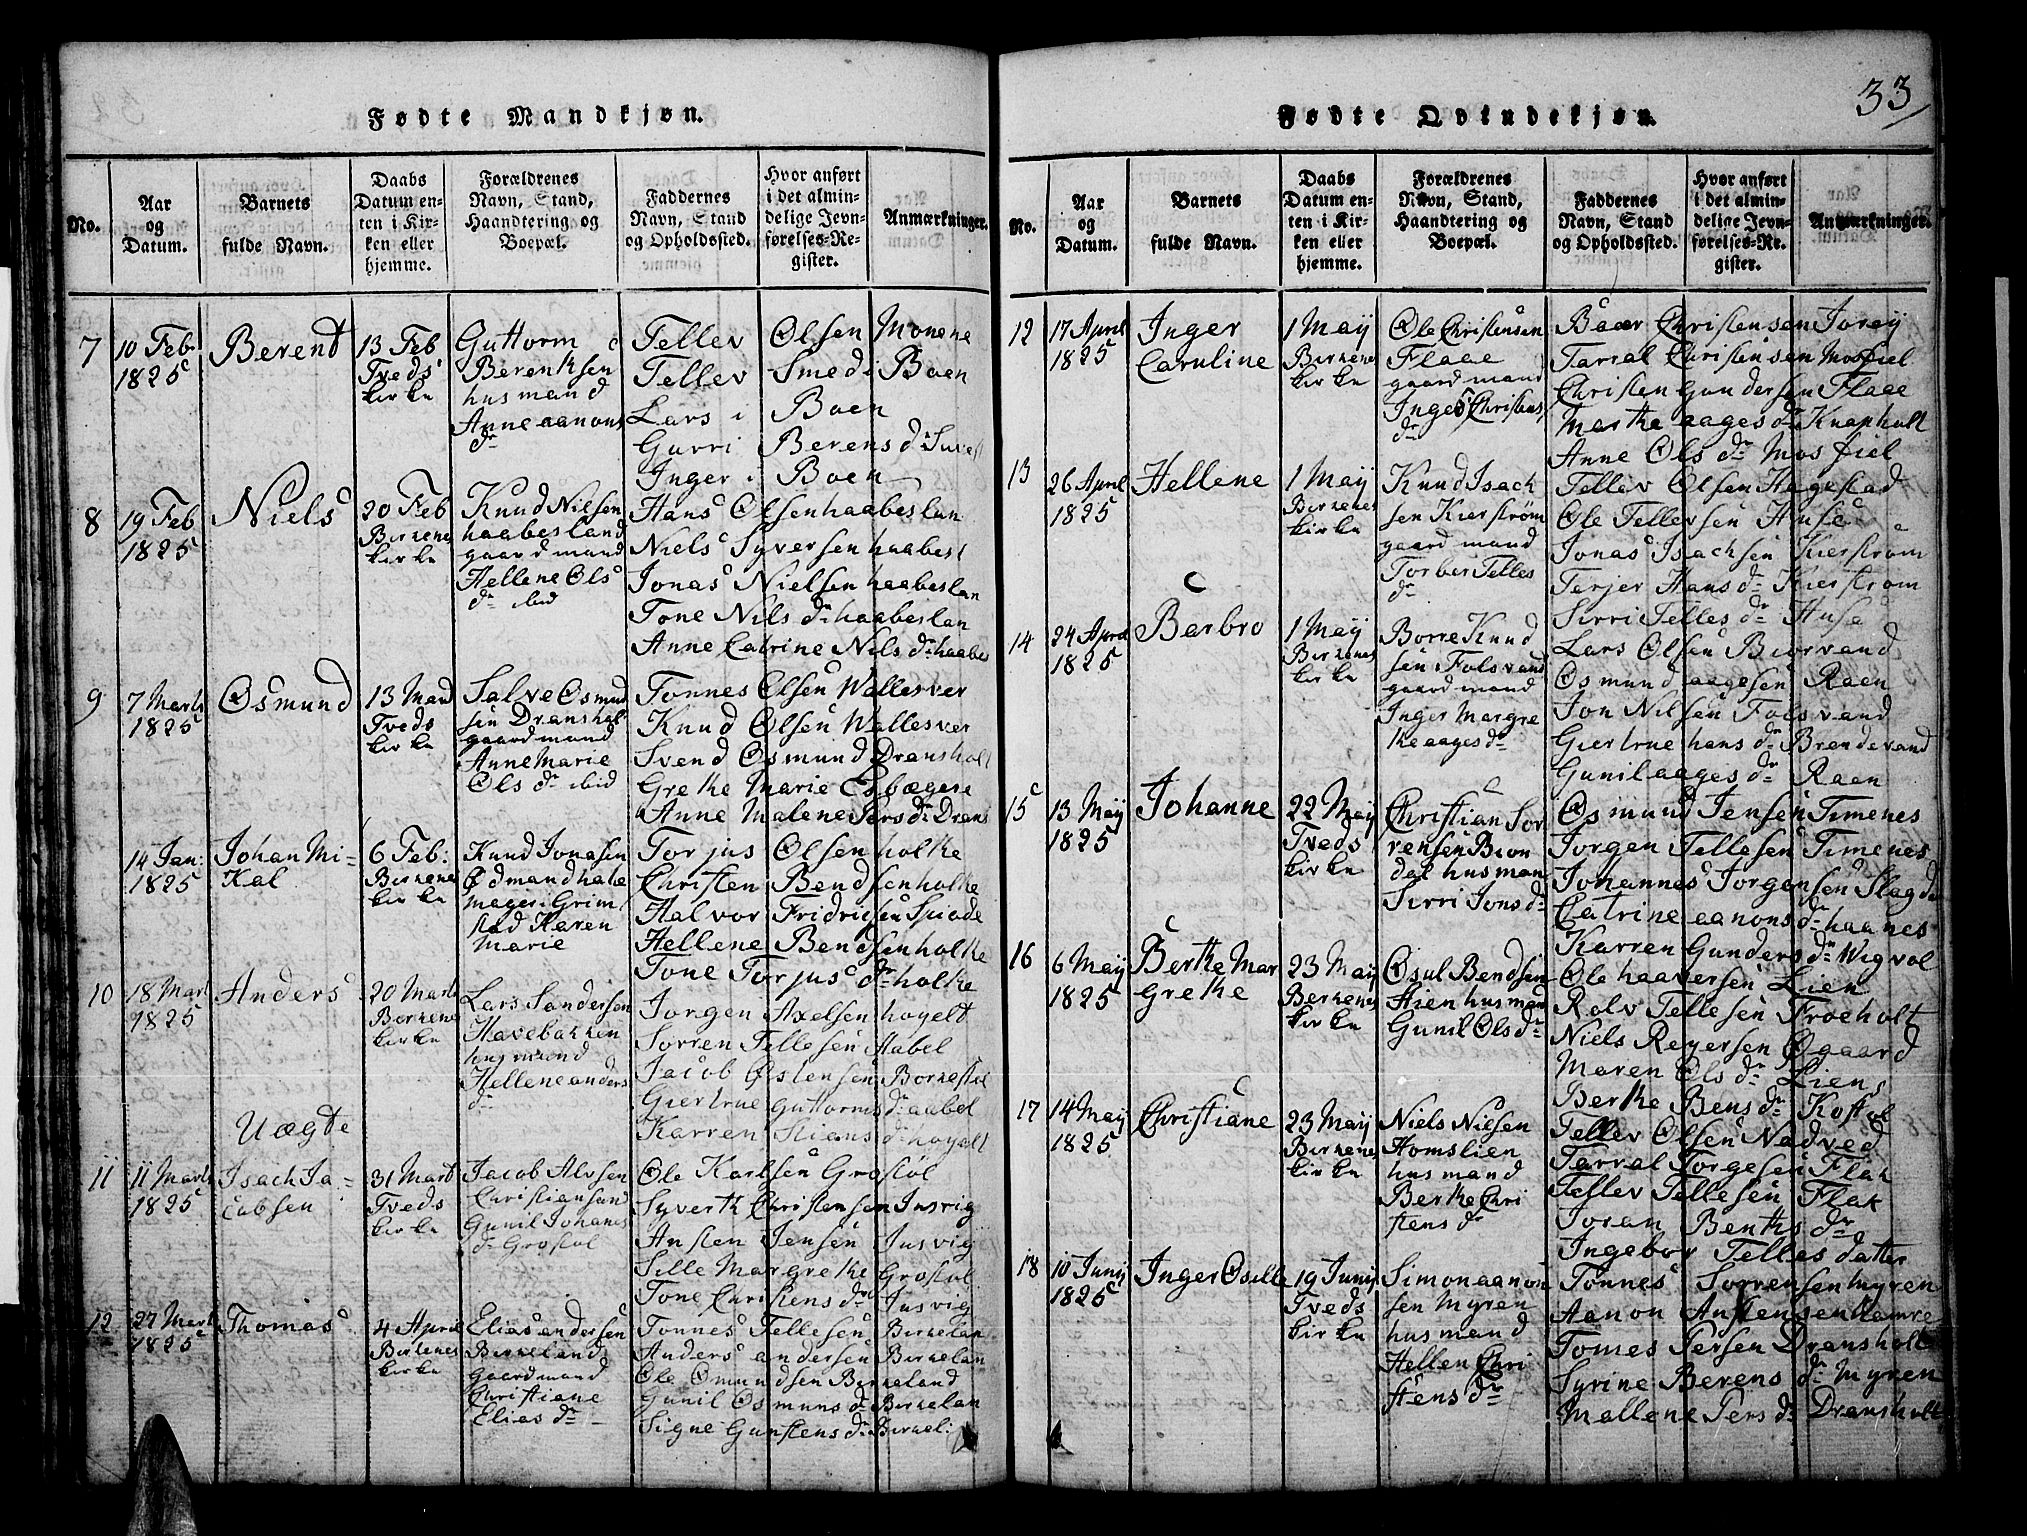 33
Fødte Mandkjøn.
No.
Aar
og
Datum.
Barnets
fulde Navn.
Daabs
Datum en-
ten i Kir-
ken eller
hjemme.
Forældrenes
Navn, Stand,
Haandtering og
Boepæl.
Faddernes
Navn, Stand
og Opholdssted.
Hvor anført
i det almin-
delige Jevn-
førelses-Re-
gister.
Anmærkninger.
7
10 Feb
1825
Berent
13 Feb
Tveds
kirke
Guttorm
Berentsen
husmand
Anne aanons
dr
Tellev Olsen Monene
Tellev Smed i Boen
Lars i Boen
Gurri Berens dr
Inger i Boen
8
19 Feb
1825
Niels
20 Feb
Birkenes
kirke
Knud Nilsen
haabesland
gaardmand
Hellene Ols
dr ibid
Hans Olsen haabeslan
Niels Syversen haabesl
Jonas Nielsen haabeslan
Tone Nils dr haabeslan
Anne Catrine Nils dr haabes
9
7 Marts
1825
Osmund
13 Mart
Tveds
kirke
Salve Osmund
sen Dranshol
gaardmand
Anne Marie
Ols dr ibid
Tonnes Olsen Wallesver
Knud Olsen Wallesver
Svend Osmund Dransholt
Grethe Marie
Anne Malene Pers dr Drans
14 Jan:
1825
Johan Mi-
kal
6 Feb:
Birkene
kirke
Knud Jonasen
Grim
stad Karen
Marie
Torjus Olsen holte
Christen Bendsen holte
Halvor Fridrigsen
Hellene Bendsen holte
Tone Torjus dr holte
10
18 Mart
1825
Anders
20 Marts
Birkene
kirke
Lars Sandersen
Havebakken
husmand
Hellene anders
dr
Jorgen Axelsen
Sorren Tellesen Aabel
Jacob Østensen Borkestøl
Giertrue Guttorms dr aabel
Karren Stians dr
Uægte
11
11 Marts
1825
Isach Ja-
cobsen
31 Mart
Tveds
kirke
Jacob
Christiansand
Gunil Johanes
dr Grostøl
Ole Karlsen Grostøl
Syverth Christensen Jusvig
Ansten Jensen Jusvig
Sille Margrethe Grostøl
Tone Christens dr Jusvig
12
27 Mart
1825
Thomas
4 April
Birkenes
kirke
Elias andersen
Birkeland
Gaardmand
Christiane
Elias dr
Tonnes Tellesen Birkelan
Anders andersen Birkelan
Ole Osmundsen Birkeland
Gunil Osmuns dr Birkelan
Signe Gunstens dr Birkel:
Fødte Qvindekjøn.
No.
Aar
og
Datum.
Barnets
fulde Navn.
Daabs
Datum en-
ten i Kir-
ken eller
hjemme.
Forældrenes
Navn, Stand,
Haandtering og
Boepæl.
Faddernes
Navn, Stand
og Opholdssted.
Hvor anført
i det almin-
delige Jevn-
førelses-Re-
gister.
Anmærkninger.
12
17 April
1825
Inger
Caroline
1 Maij
Birkenes
kirke
Ole Christensen
Flaae
gaardmand
Inger Christens
dr
Baaer Christensen
Tarral Christensen Mosfiel
Christen Gundersen Flaae
Marthe aages dr Knapholt
Anne Ols dr Mosfiel
13
26 April
1825
Hellene
1 Maij
Birkenes
kirke
Knud Isach
sen Kierstrøm
gaardmand
Torber Telles
dr
Tellev Olsen Hegestad
Ole Tellevsen Huse
Jonas Isachsen Kierstrøm
Terjer Hans dr Kierstrøm
Sirri Telles dr Huse
14
24 April
1825
Barbro
1 Maij
Birkenes
kirke
Borre Knud
sen Folsvand
gaardmand
Inger Margre
the aages dr
Lars Olsen Biorvand
Osmund aagesen Raen
Jon Nilsen Folsvand
Giertrue hans dr Brendevand
Gunil aages dr Raen
15
13 Maij
1825
Johanne
22 Maij
Tveds
kirke
Christian Sor
rensen Bion
dal husman
Sirri Jons dr
Osmund Jensen Timenes
Jorgen Tellesen Timenes
Johannes Jorgensen
Catrine aanons dr haanes
Karren Gunders dr Wigvol
16
6 Maij
1825
Berthe Mar
grethe
23 Maij
Birkenes
kirke
Osul Bendsen
husmand
Gunil Ols dr
Ole haaversen Lien
Rolv Tellesen Froeholt
Niels Reyersen Øgaard
Maren Ols dr Liens
Berthe Bens dr Kostøl
17
14 Maij
1825
Christiane
23 Maij
Birkenes
kirke
Niels Nielsen
Homslien
husmand
Berthe Chri
stens dr
Tellev Olsen Nadved
Tarral Torgesen Flak
Tellev Tellesen Flak
Joran Benths dr
Ingebor Telles datter
18
10 Junij
1825
Inger Oselle
19 Junij
Tveds
kirke
Simon aanon
sen Myren
husmand
Hellen Chri
stens dr
Tonnes Sorrensen Myren
Aanon Anstensen Hamre
Tomes Persen Dransholt
Syrine Berens dr Myren
Mallene Pers dr Dransholt